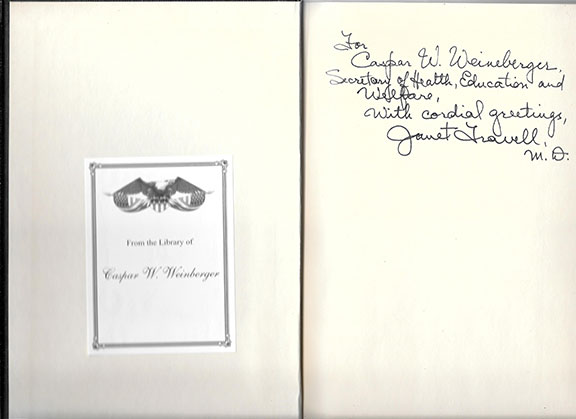 From the Library of
Caspar W. Weinberger
For
Caspar W. Weineberger,
Secretary of Health, Education and
Welfare,
With cordial greetings,
Janet Travell,
M.D.